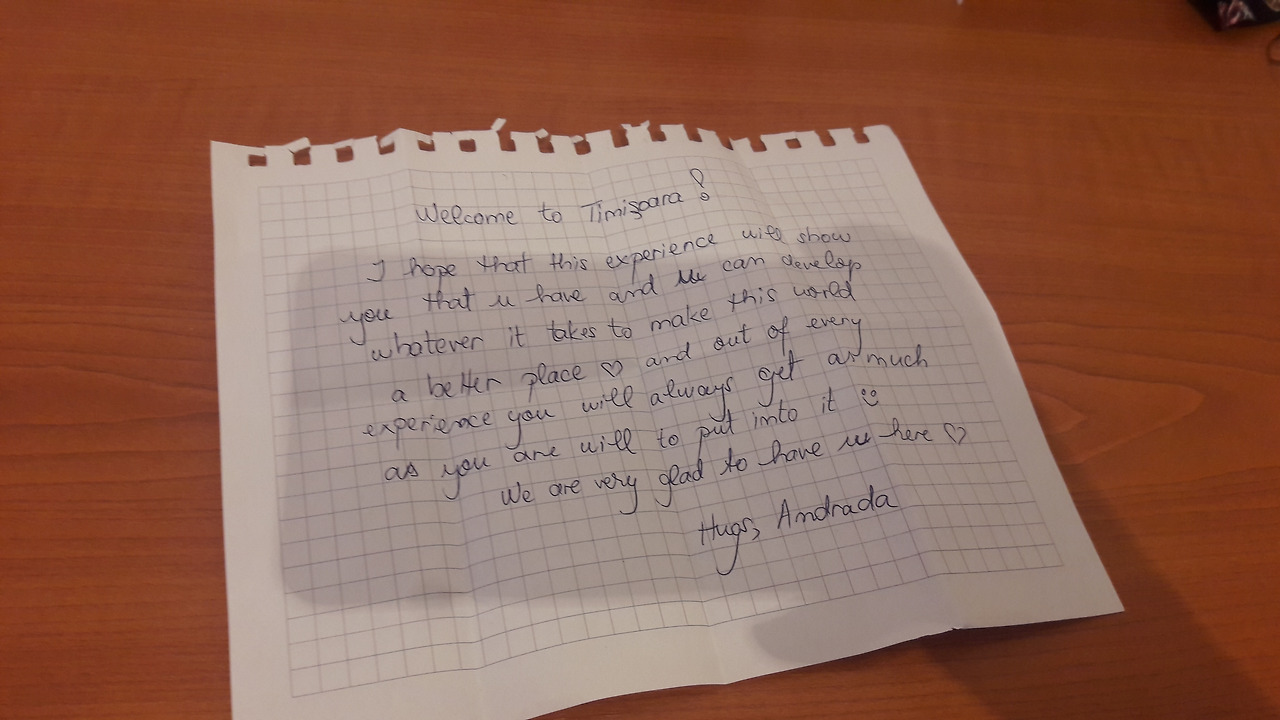 Welcome to Timișoara!
I hope that this experience will show
you that u have and u can develop
whatever it takes to make this world
a better place ♡ and out of every
experience you will always get as much
as you are will to put into it :)
We are very glad to have u here ♡
Hugs, Andrada